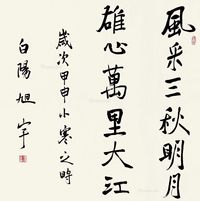 風采三秋明月
雄心萬里大江
歲次甲申小寒之時
白陽旭宇